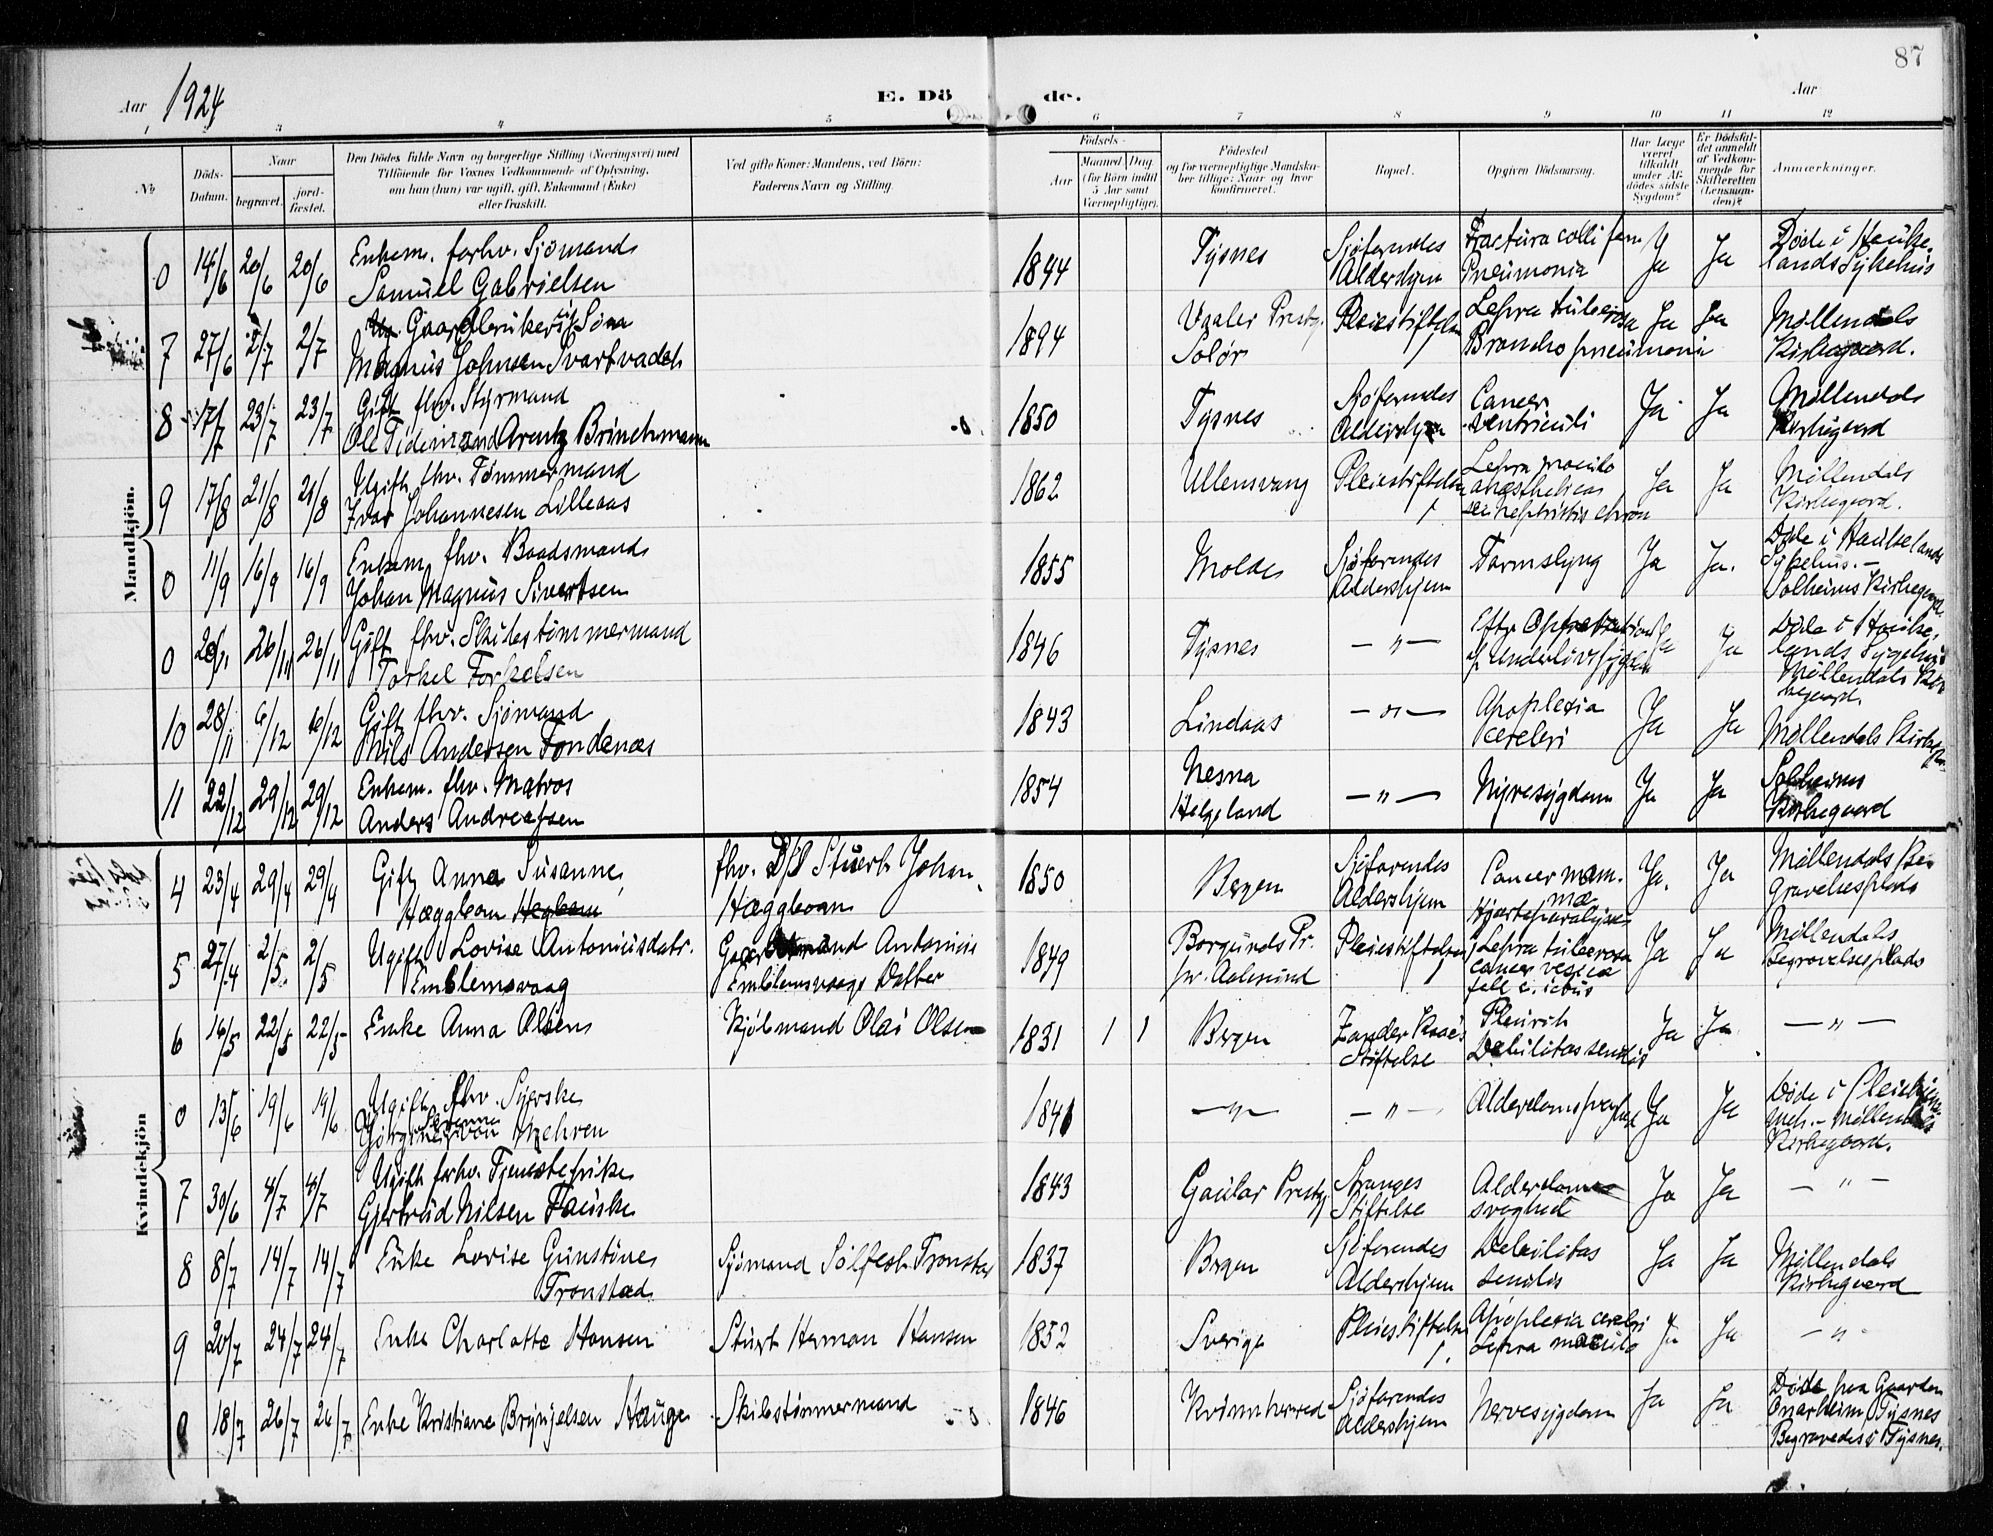 87
Aar 1924
E. Dö
de.
Aar
3 4 5 6 7 8 9 10 11 12
No
Döds-Datum.
Naar
begravet.
jordfæstet.
Den Dödes fulde Navn og borgerlige Stilling (Næringsvei) med
Tilföiende for Voxnes Vedkommende af Oplysning,
om han (hun) var ugift, gift, Enkemand (Enke)
eller fraskilt.
Ved gifte Koner: Mandens, ved Börn:
Faderens Navn og Stilling.
Födsels-
Aar
Maaned Dag
(for Börn indtil
5 Aar samt
Værnepligtige).
Födested
og for værnepligtige Mandska-
ber tillige: Naar og hvor
konfirmeret.
Bopæl.
Opgiven Dödsaarsag.
Har Læge
været
tilkaldt
under Af-
dödes sidste
Sygdom?
Er Dödsfal-
det anmeldt
af Vedkom-
mende for
Skifteretten
(Lensman-
den)?
Anmærkninger.
Mandkjön.
0 14/6 20/6 20/6 Enkem. forhv. Sjömand
Samuel Gabrielsen
1844 Tysnes Sjöfarendes Aldershjem Fractura colli fem Pneumonia Ja Ja Döde i Haukelands Sykehus
7 27/6 2/7 2/7 Gaardbrukers Sön
Magnus Johnsen Svartvadet
1894 Vaaler Prestg. Solör Pleiestiftelsen Lepra tuberosa Bronchopneumonia Ja Ja Möllendals Kirkegaard.
8 17/7 23/7 23/7 Gift fhv. Styrmand
Ole Tidemand Arentz Brinchmann
1850 Tysnes Sjöfarendes Aldershjem Cancer ventriculi Ja Ja Möllendals Kirkegaard
9 17/8 21/8 21/8 Ugift fhv. Tömmermand
Ivar Johannesen Lilleaas
1862 Ullensvang Pleiestiftelsen Lepra maculo anæsthetica nephritis chron Ja Ja Möllendals Kirkegaard.
0 11/9 16/9 16/9 Enkem. fhv. Baadsmand
Johan Magnus Sivertsen
1855 Molde Sjöfarendes Aldershjem Tarmslyng Ja Ja. Döde i Haukelands Sykehus. - Solheims Kirkegaard
0 26/11 26/11 Gift fhv. Skibstömmermand
Torkel Torkelsen
1846 Tysnes — " — Eftr Operation f. Underlivssygdom Ja Ja Döde i Haukelands Sygehus Möllendals Kirkegaard.
10 28/11 6/12 6/12 Gift fhv. Sjömand
Nils Andersen Fondenæs
1843 Lindaas — " — Apoplexia cerebri Ja Ja Möllendals Kirkegr.
11 22/12 29/12 29/12 Enkem. fhv. Matros
Anders Andreassen
1854 Nesna Helgeland — " — Nyresygdom Ja Ja Solheims Kirkegaard
Kvindekjön
4 23/4 29/4 29/4 Gift Anna Susanne
Hæggbom
fhv. D/S Stuert Johan
Hæggbom
1850 Bergen Sjöfarendes Aldershjem Cancer mammæ Hjerteparalyse Ja. Ja Möllendals Begravelsesplads
5 27/4 2/5. 2/5 Ugift Lovise Antoniusdatr.
Emblemsvaag
Antonius
Emblemsvaags Datter
1849 Borgunds Pr. pr. Aalesund Pleiestiftelsen Lepra tuberosa cancer vesica fell c. ictus Ja Ja Möllendals Begravelsesplads
6 16/5 22/5 22/5 Enke Anna Olsen
Kjölmand Olai Olsen
1831 1 1 Bergen Zander Kaaes Stiftelse Pleurit Debilitas senilis Ja Ja — " —
0 13/6 19/6 19/6 Ugift fhv. Syerske
von Mehren
1841 — " — — " — Alderdomssvaghed Ja Ja Döde i Möllendals Kirkegaard.
7 30/6 4/7 4/7 Ugift forhv. Tjenestepike
Gjertrud Nilsen Fauske
1843 Gaular Prestg Stranges Stiftelse Alderdomssvaghed Ja Ja — " —
8 8/7 14/7 14/7 Enke Lovise Gunstöne
Tronstad
Sjömand Sölfest Tronstad
1837 Bergen Sjöfarendes Aldershjem Debilitas senilis Ja Ja Möllendals Kirkegaard
9 20/7 24/7 24/7 Enke Charlotte Hansen
Stuert Herman Hansen
1852 Sverige Pleiestiftelsen Apoplexia cerebri Lepra maculo Ja Ja — " —
0 18/7 26/7 26/7 Enke Kristiane Brynjelsen Hauge
Skibstömmermand
1846 Kvinnherred Sjöfarendes Aldershjem Nervesygdom Ja Ja Döde paa Gaarden Onarheim, Tysnes Begravedes i Tysnes.